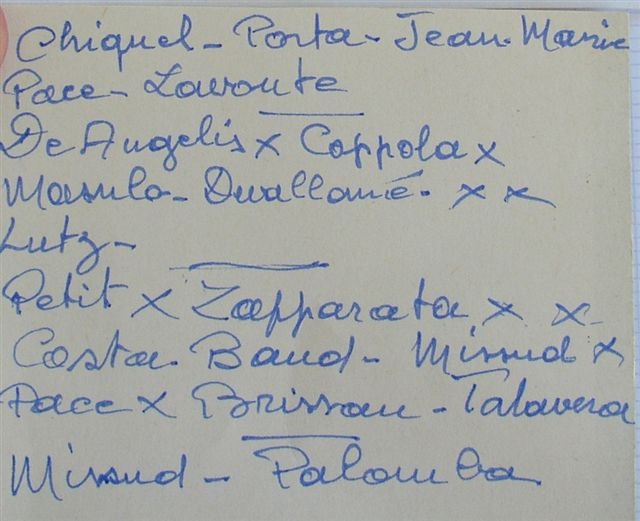 Chiquel - Porta - Jean-Marie
Pace - Lavoute
De Angelis x Coppola x
Masulo - Duallomé - x x
Lutz -
Petit x Zapparata x x
Costa - Baud - Missud x
Pace x Brissau - Talavera
Missud - Palomba